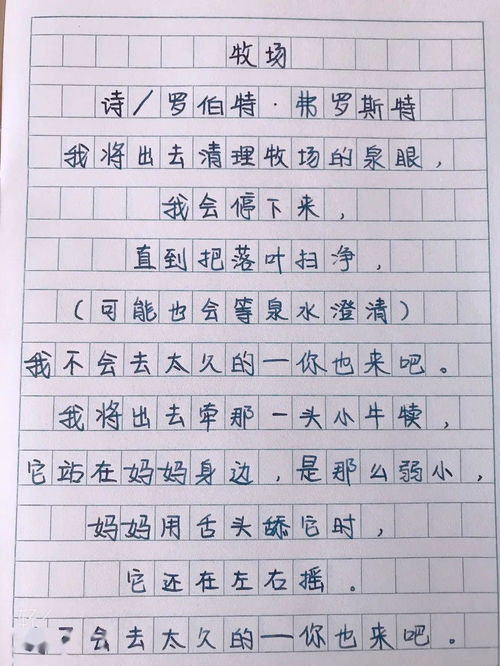 牧场
诗/罗伯特·弗罗斯特
我将出去清理牧场的泉眼，
我会停下来，
直到把落叶扫净，
(可能也会等泉水澄清)
我不会去太久的一你也来吧。
我将出去牵那一头小牛犊，
它站在妈妈身边，是那么弱小，
妈妈用舌头舔它时，
它还在左右摇。
会去太久的一你也来吧。